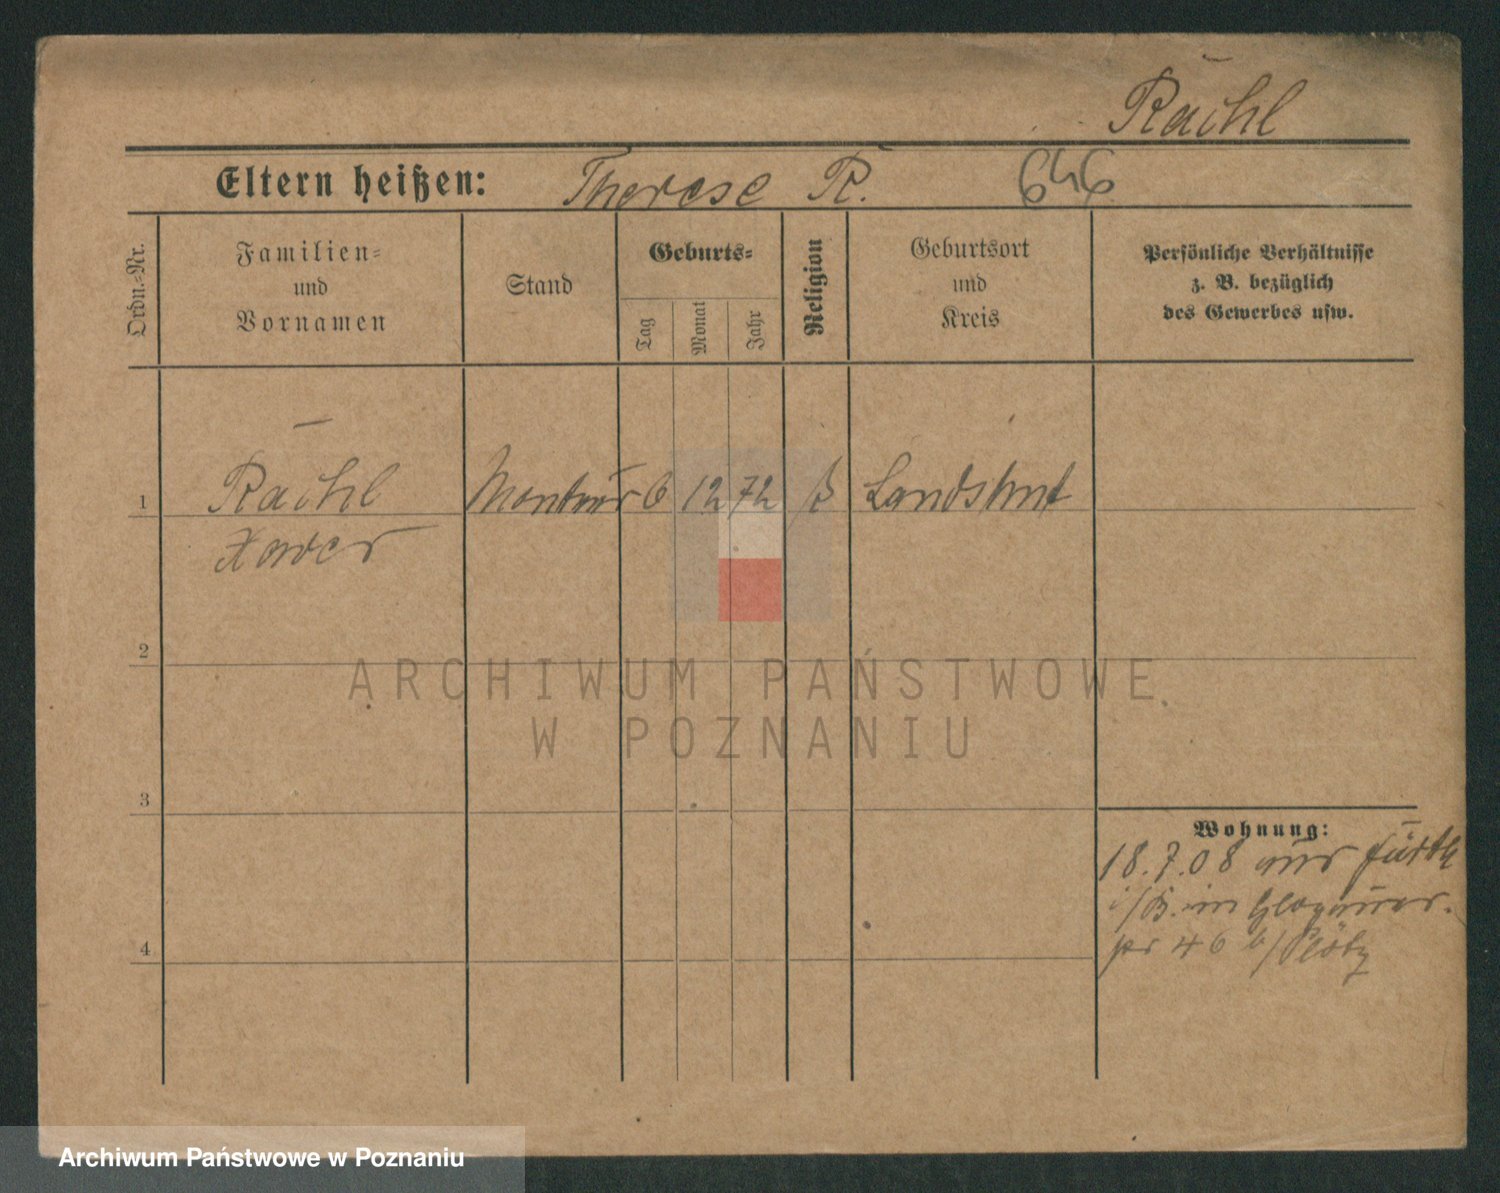 Rachl
Eltern heißen: Therese R. 646
Ordn.-Nr.
Familien-
und
Vornamen
Stand
Geburts-
Tag
Monat
Jahr
Religion
Geburtsort
und
Kreis
Persönliche Verhältnisse
z. B. bezüglich
des Gewerbes usw.
1 Rachl Monteur 6 12 72 Landshut
Xaver
2
3
4
Wohnung:
18.7.08 aus Fürth
i/B. in Glogauer-
46 b/Plötz
ARCHIWUM PAŃSTWOWE
W POZNANIU
Archiwum Państwowe w Poznaniu